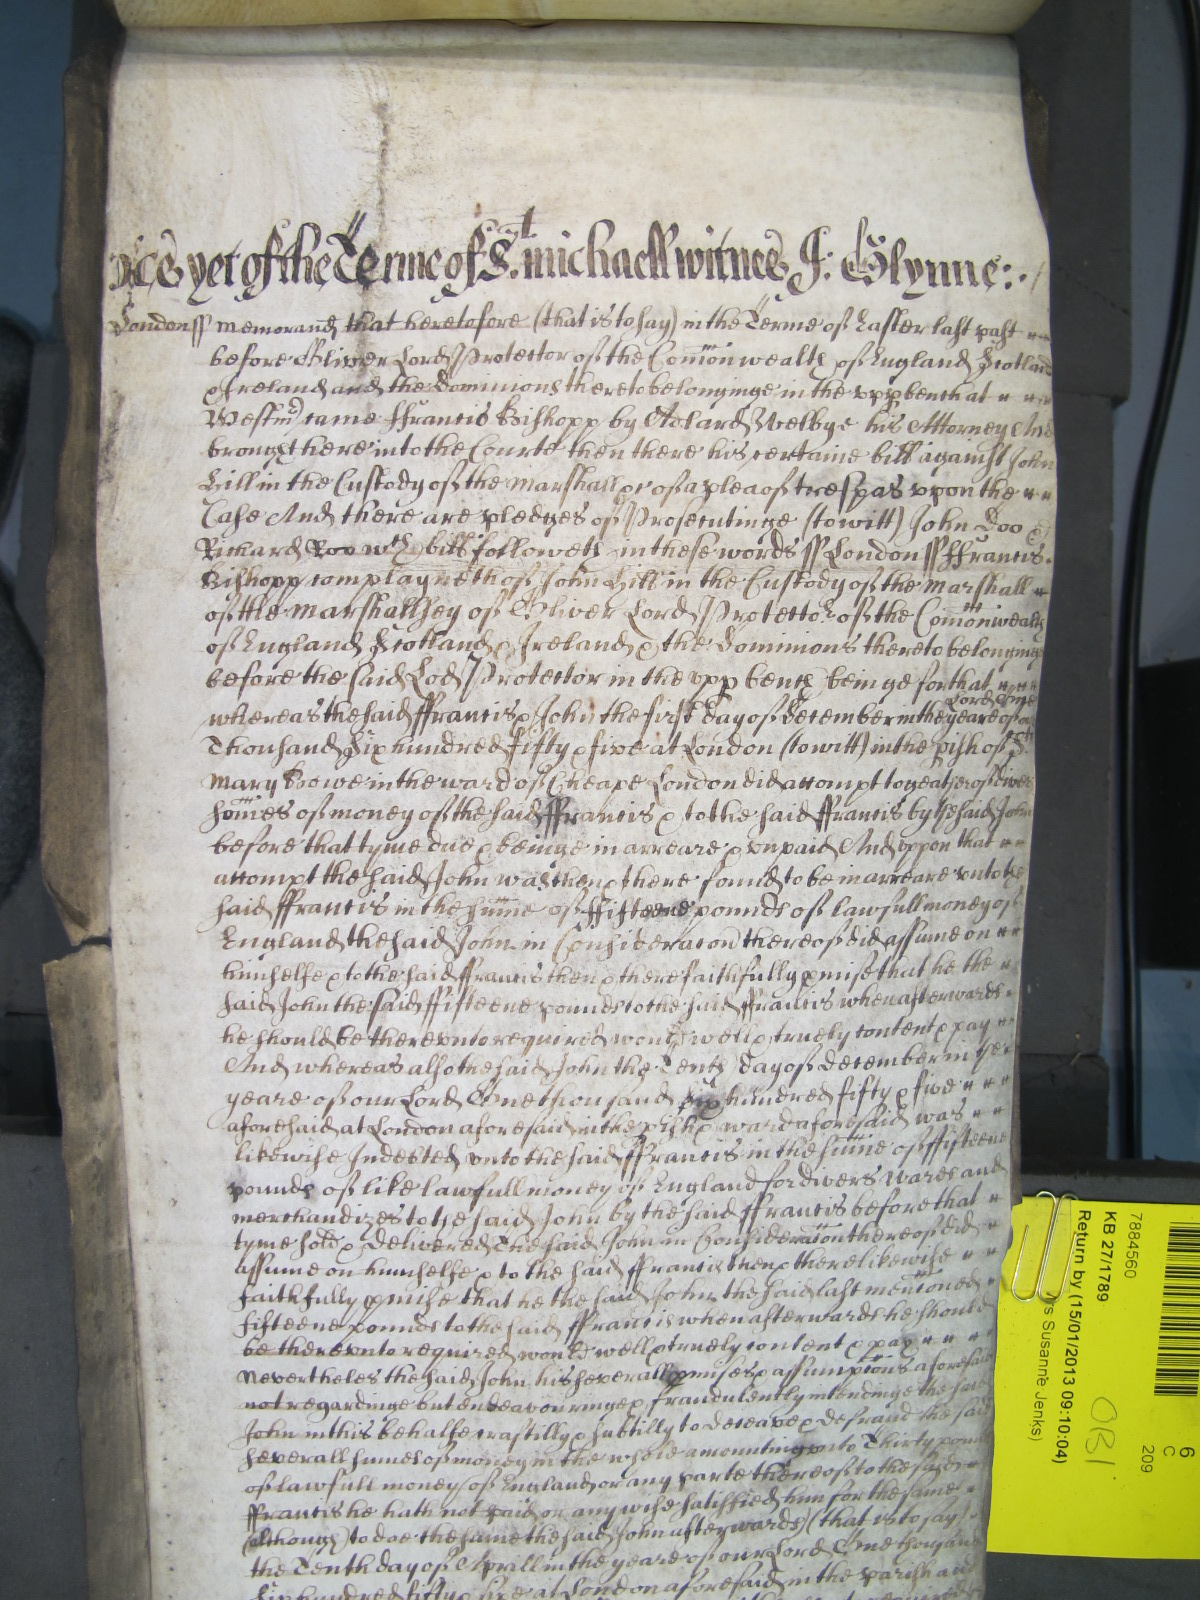 yet of the Terme of St. Michaell witnes J: Glynne:
London ss Memorand that heretofore (that is to say) in the Terme of Easter last past
before Oliver Lord Protector of the Comonwealth of England Scotland
& Ireland and the Dominions thereto belonginge in the vpp bench at
Westmr came ffrancis Bishopp by Adlard Welbye his Attorney And
brought here into the Courte then there his certaine bill against John
Hill in the Custody of the Marshall &c of a plea of trespas vpon the
Case And there are pledges of Prosecutinge (to witt) John Doo &
Richard Roo wch bill followeth in these words ss London ss ffrancis
Bishopp complayneth of John Hill in the Custody of the Marshall
of the Marshallsey of Oliver Lord Protector of the Comonwealth
of England Scotland & Ireland & the Dominions thereto belonginge
before the said Lord Protector in the vpp bench beinge for that
whereas the said ffrancis & John the first day of December in the yeare of or Lord One
Thousand Six hundred fifty & five at London (to witt) in the pish of St.
Mary Bowe in the ward of Cheape London did attompt togeather of divers
somes of money of the said ffrancis & to the said ffrancis by the said John
before that tyme due & beinge in arreare & vnpaid And vppon that
attompt the said John was then & there found to be in arreare vnto the
said ffrancis in the sume of ffifteene pounds of lawfull money of
England the said John in Consideracon thereof did assume on
himselfe & to the said ffrancis then & there faithfully pmise that he the
said John the said ffifteene pounds to the said ffrancis when afterwards
he should be therevnto required would well & truely content & pay
And whereas also the said John the Tenth day of December in the
yeare of our Lord One thousand Six hundred fifty & five
aforesaid at London aforesaid in the pish & ward aforesaid was
likewise Indebted vnto the said ffrancis in the sume of ffifteene
pounds of like lawfull money of England for divers wares and
merchandizes to the said John by the said ffrancis before that
tyme sold & delivered The said John in Consideracon thereof did
assume on himselfe & to the said ffrancis then & there likewise
faithfully pmise that he the said John the said last mencioned
fifteene pounds to the said ffrancis when afterwards he should
be therevnto required would well & truely content & pay
Nevertheles the said John his severall pmises & assumptions aforesaid
not regardinge but endeavouringe & fraudulently intendinge the said
John in this behalfe craftilly & subtilly to deceave & defraud the said
severall sumes of money in the whole amountinge vnto Thirty pounds
of lawfull money of England or any parte thereof to the said
ffrancis he hath not paid or any wise satisfied him for the same
(although) to doe the same the said John afterwards) (that is to say)
the Tenth day of Aprill in the yeare of our Lord One thousand
Six hundred fifty & six at London aforesaid in the parish and
7884560
KB 27/1789
Return by (15/01/2013 09:10:04)
Susanne Jenks)
OB1
6
C
209